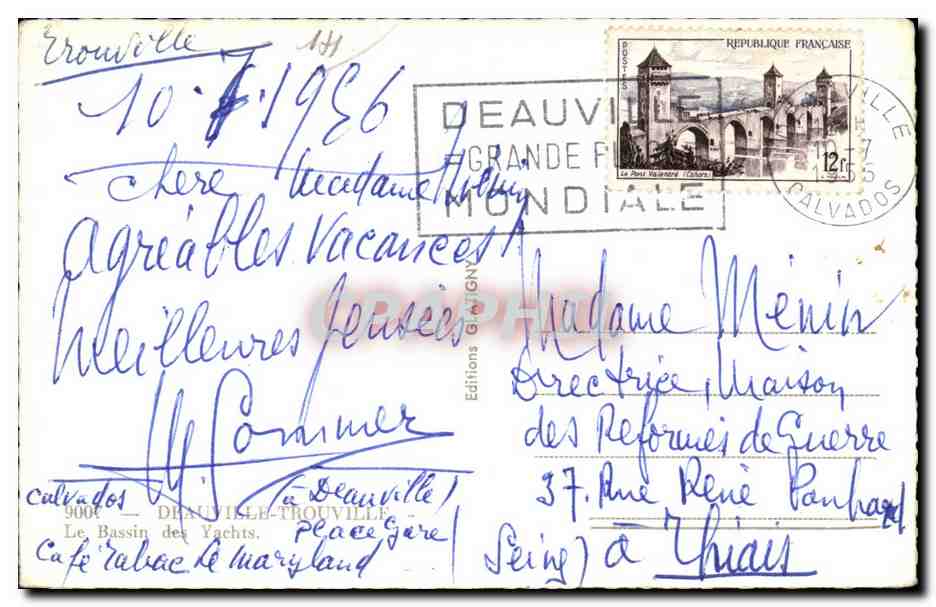 Trouville
10. 7. 1956
chère Madame Ménin
agréables vacances!
Meilleures pensées
M. Sommer
calvados
(à Deauville)
place gare
Café Tabac Le Maryland
900 — DEAUVILLE-TROUVILLE
Le Bassin des Yachts.
Editions GLATIGNY
CPAPHIL
DEAUVILLE
GRANDE
MONDIALE
REPUBLIQUE FRANÇAISE
POSTES
12f
Le Pont Valentré (Cahors)
VILLE
10-7
CALVADOS
Madame Ménin
Directrice, Maison
des Réformés de Guerre
37. Rue René Panhard
(Seine) à Thiais